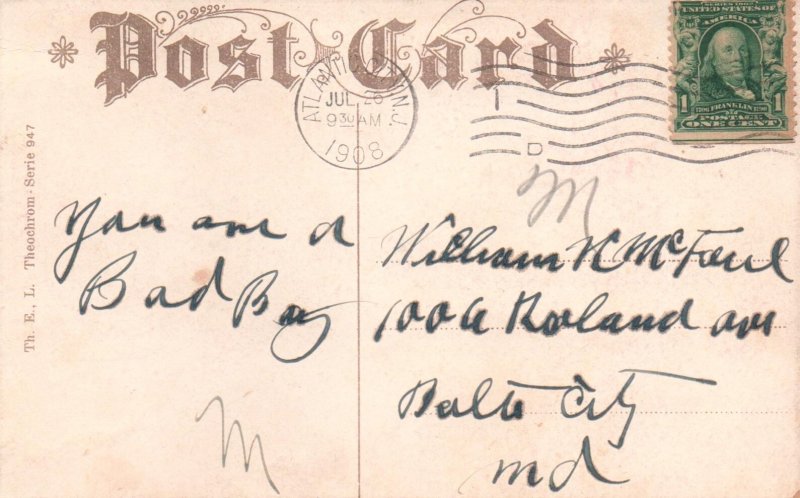 Post Card
SERIES 1902
UNITED STATES OF
AMERICA
1 FRANKLIN 1
POSTAGE
ONE CENT
ATLANTIC CITY, N.J.
JUL 28
9 30 AM
1908
D
Th. E., L. Theochrom - Serie 947
You are a
Bad Boy
M
M
William H McFaul
1006 Roland ave
Balto City
md